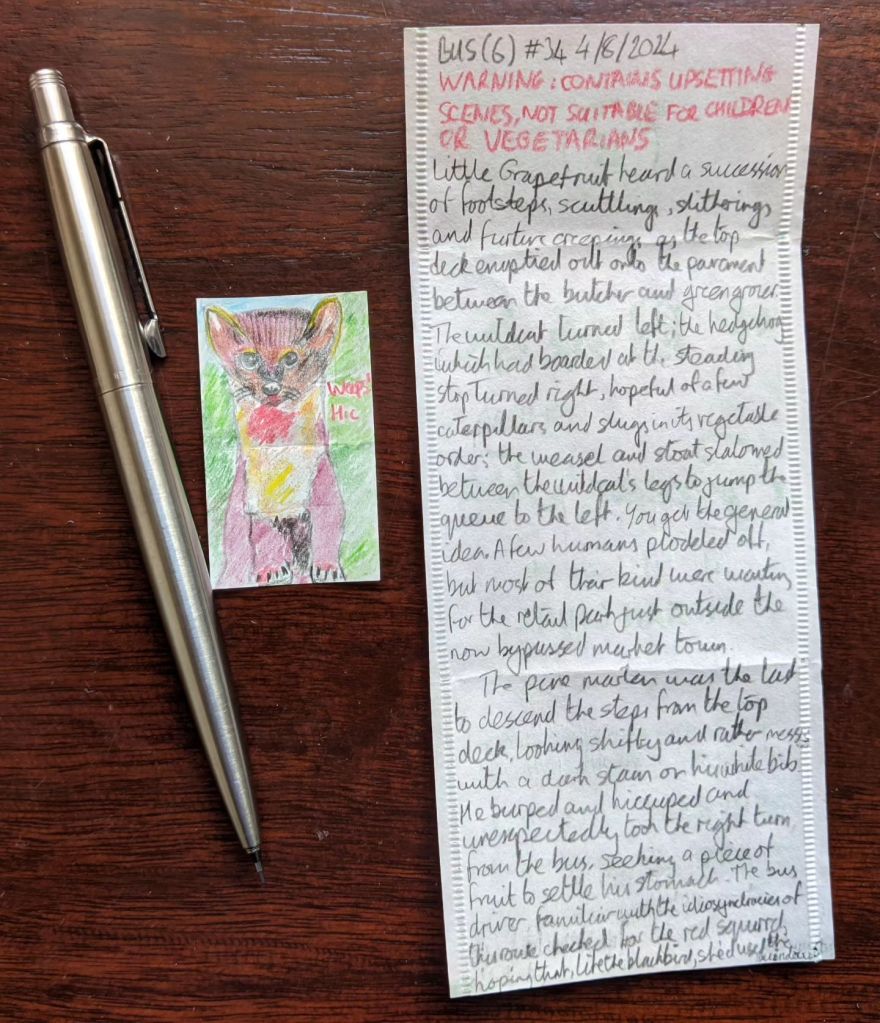 Hic
BUS (6) #34 4/8/2024
WARNING: CONTAINS UPSETTING
SCENES, NOT SUITABLE FOR CHILDREN
OR VEGETARIANS
Little Grapefruit heard a succession
of footsteps, scuttlings, slitherings
and furtive creepings as the top
deck emptied out onto the pavement
between the butcher and greengrocer.
The wildcat turned left; the hedgehog
which had boarded at the steading
stop turned right, hopeful of a few
caterpillars and slugs in its vegetable
order; the weasel and stoat slalomed
between the wildcat's legs to jump the
queue to the left. You get the general
idea. A few humans plodded off,
but most of their kind were waiting
for the retail park just outside the
now bypassed market town.
The pine marten was the last
to descend the steps from the top
deck, looking shifty and rather messy
with a dark stain on his white bib.
He burped and hiccuped and
unexpectedly took the right turn
from the bus, seeking a piece of
fruit to settle his stomach. The bus
driver familiar with the idiosyncracies of
this route checked for the red squirrel,
hoping that, like the blackbird, she'd used the